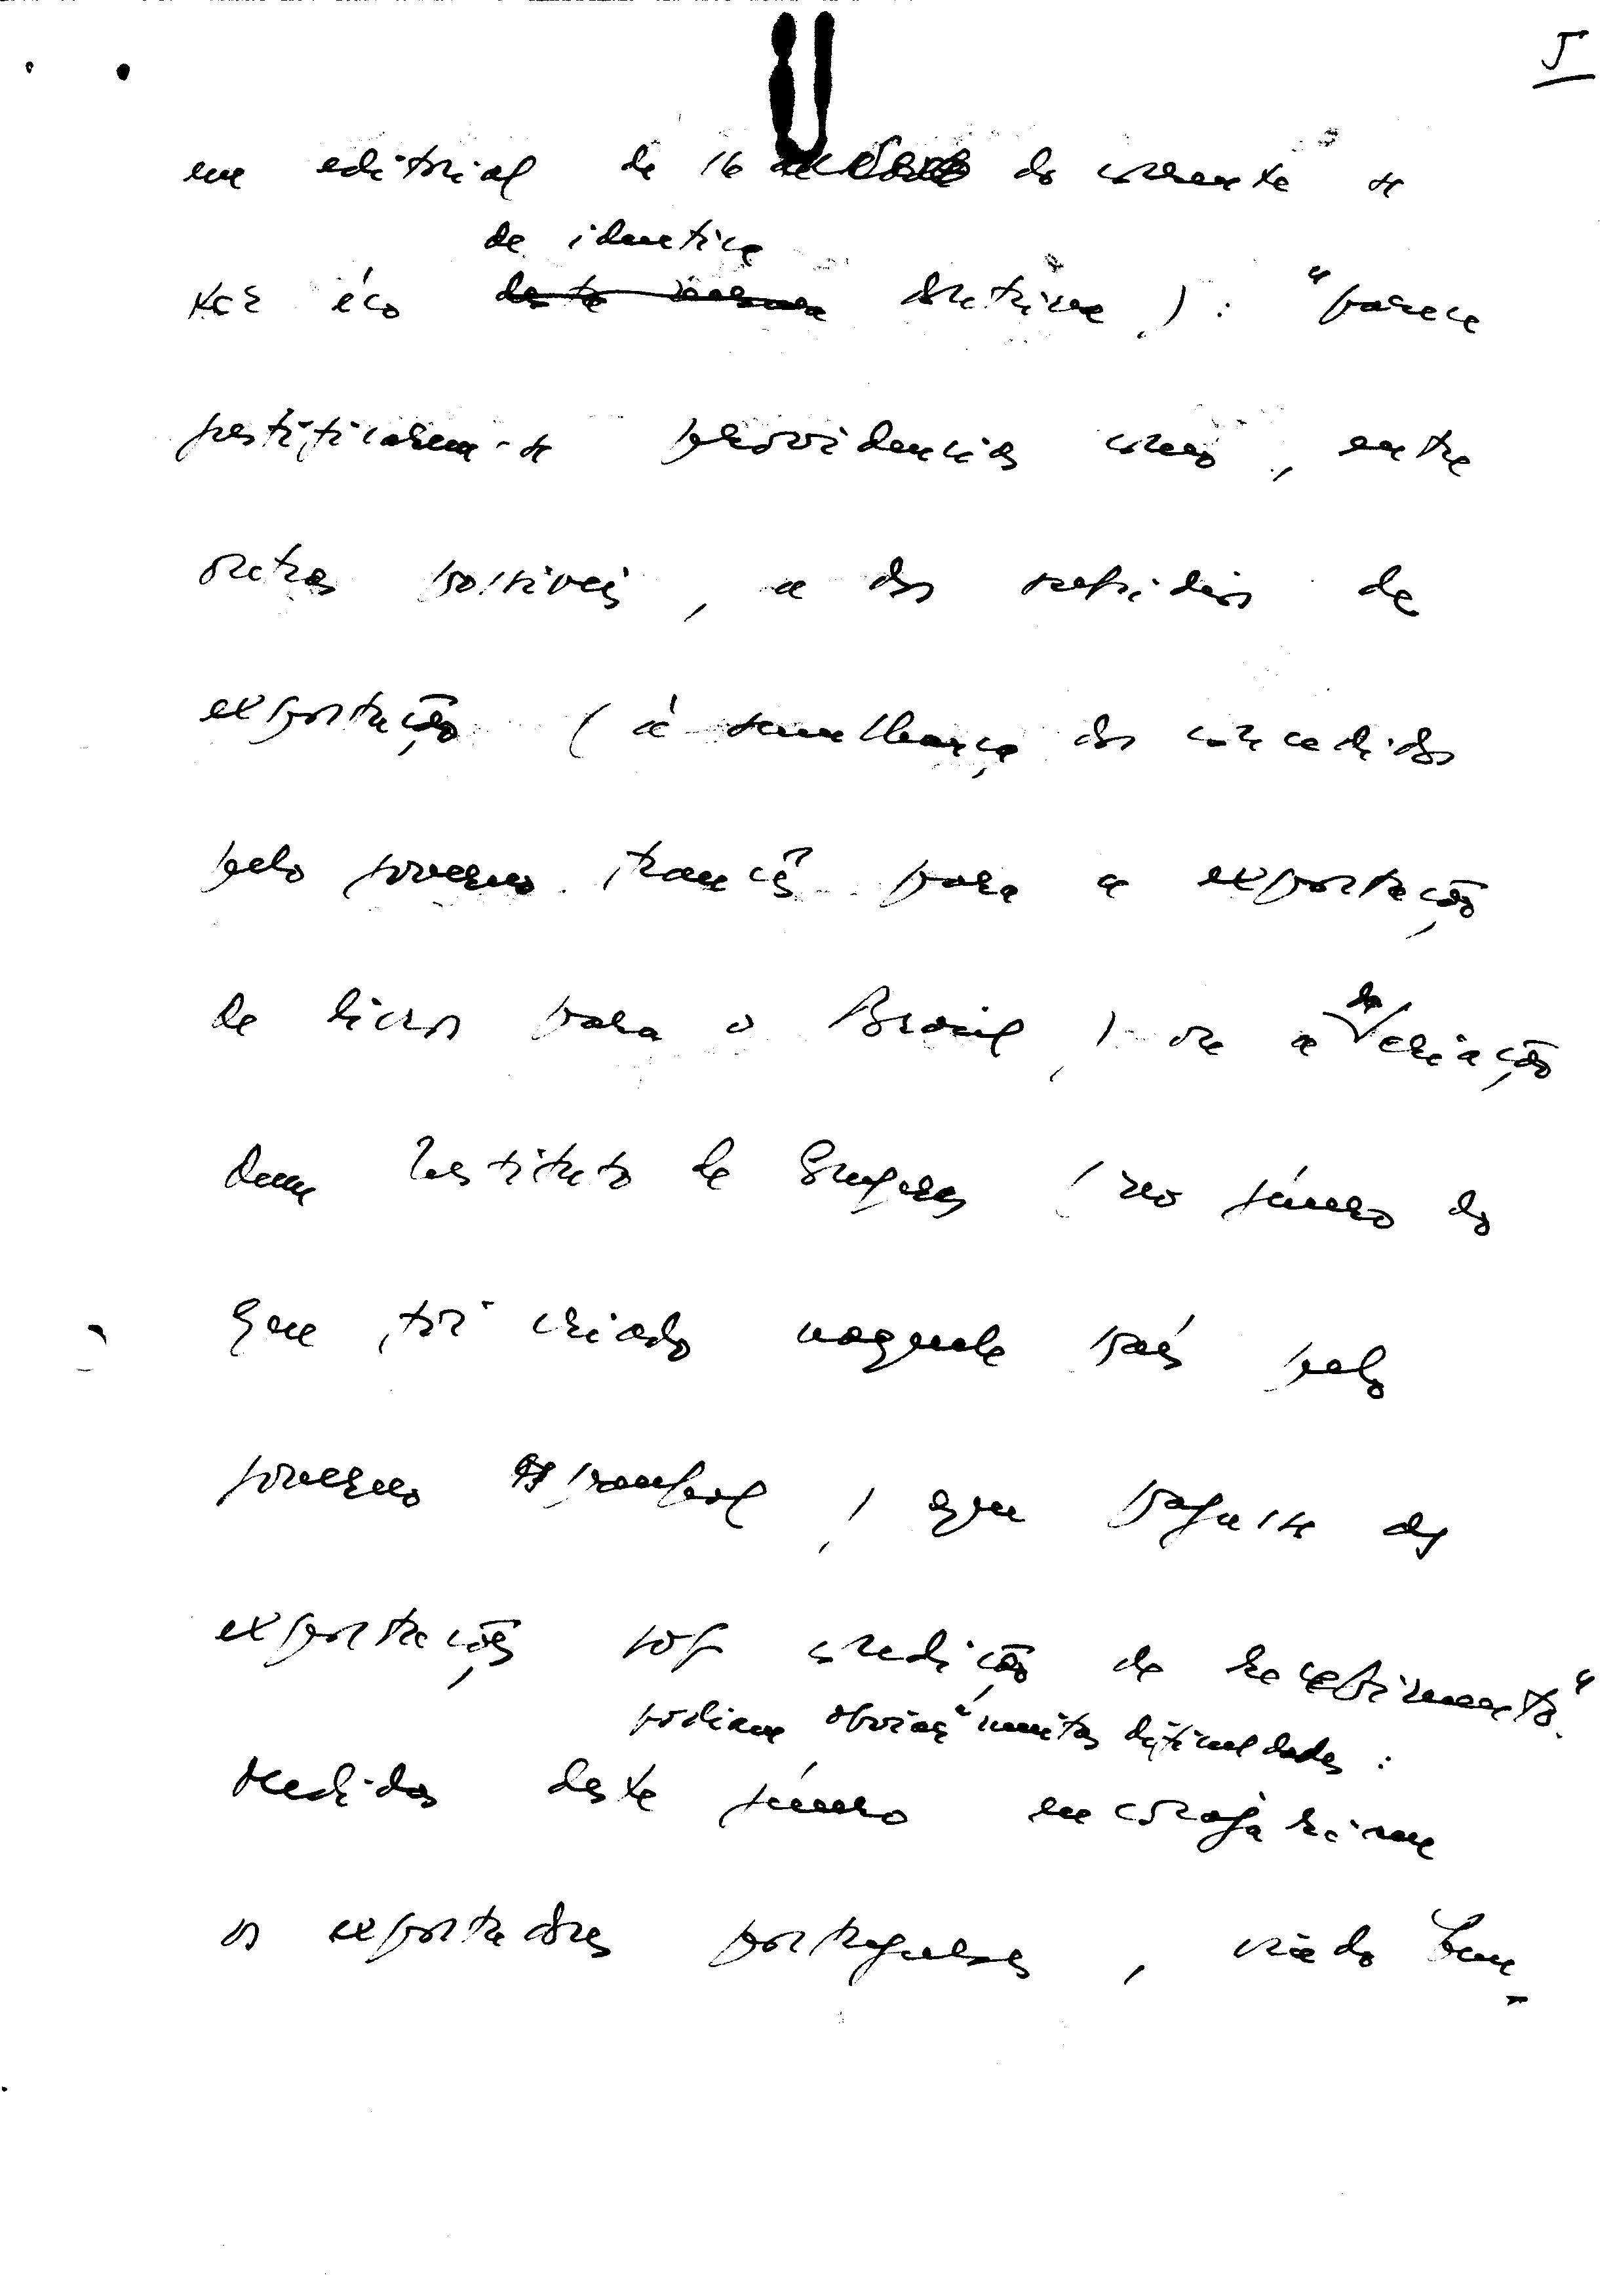 5
em editorial de 16 do corrente se
de identica
fez éco desta mesma doutrina): "parece
justificarem-se providencias como, entre
outras possiveis, a dos subsidios de
exportação (á semelhança dos concedidos
pelo governo francês para a exportação
de livros para o Brasil) ou a da criação
dum Instituto de Seguros (no género do
que foi criado naquele país pelo
governo espanhol) que pagasse as
exportações sob condição de recebimento"
podiam obviar "muitas dificuldades:
Medidas deste género encorajariam
os exportadores portugueses, não tam-